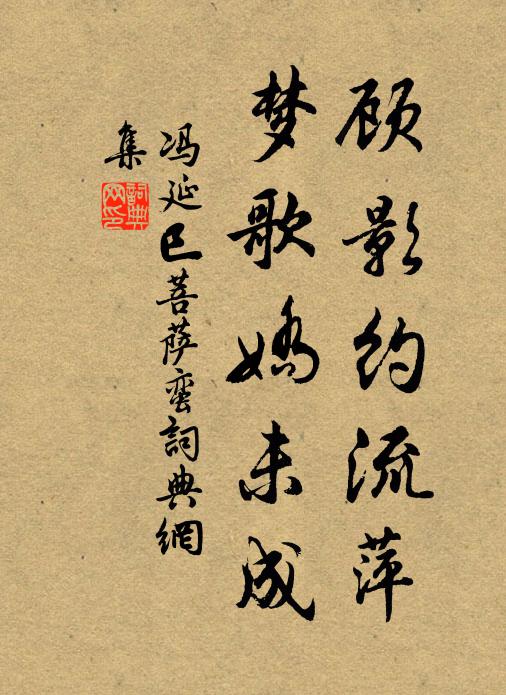 顾影约流萍
梦歌娇未成
冯延巳菩萨蛮詞典網
集
詞典网印